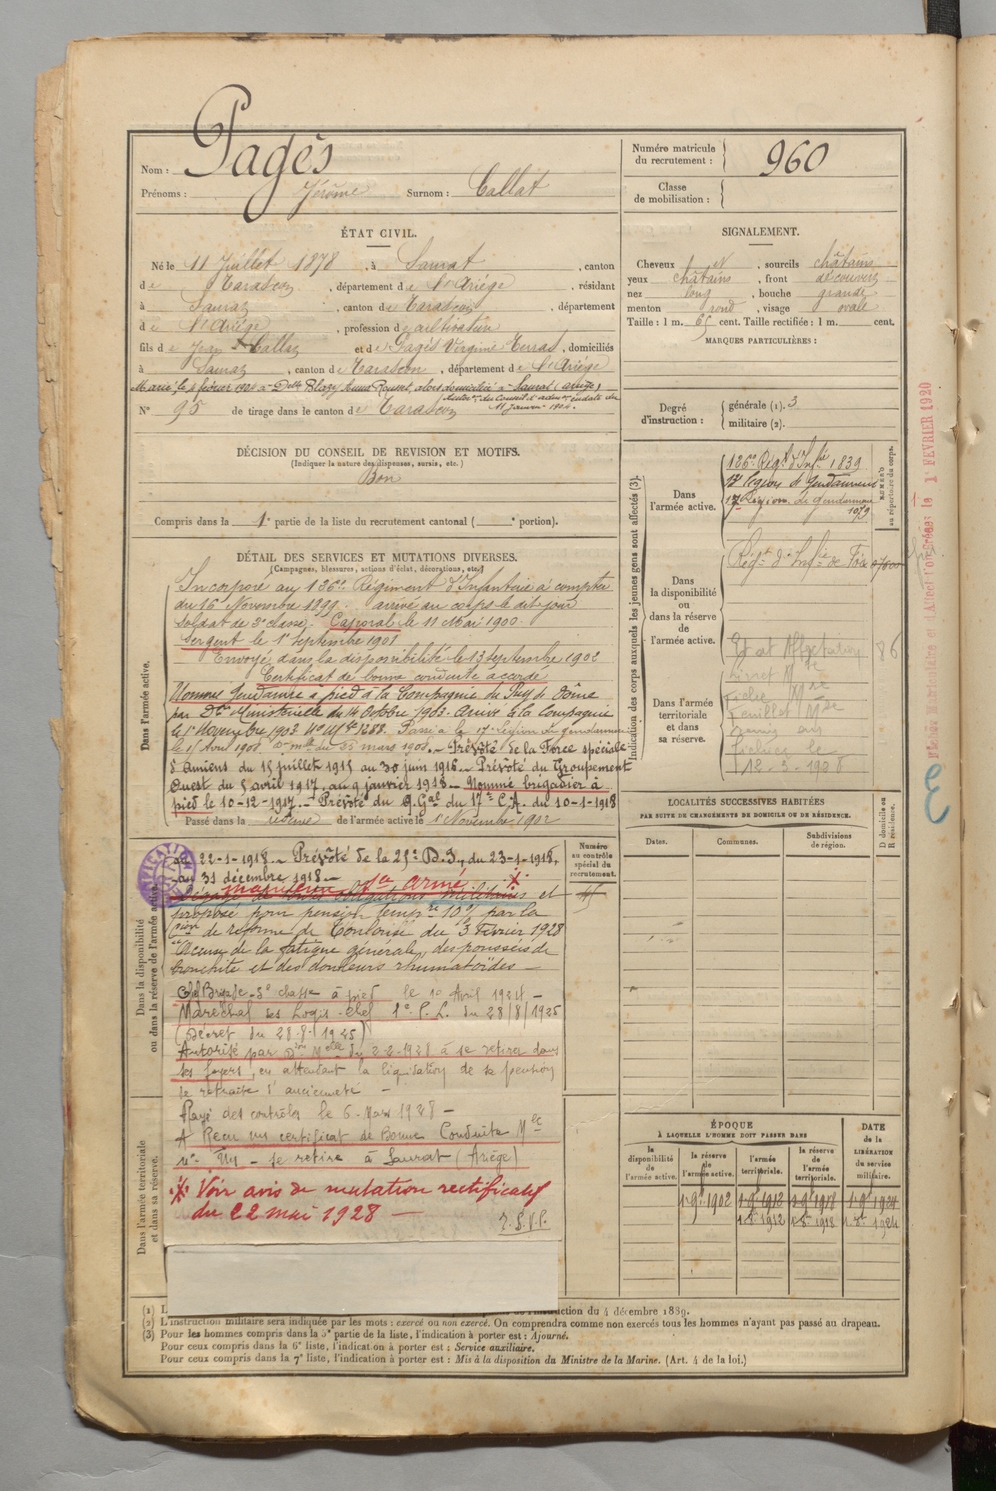 Nom : Pagès
Prénoms : Jérôme Surnom : Callat
Numéro matricule du recrutement : 960
Classe de mobilisation :
ÉTAT CIVIL.
Né le 11 Juillet 1878, à Saurat, canton
de Tarascon, département de l'Ariége, résidant
à Saurat, canton de Tarascon, département
de l'Ariége, profession de cultivateur
fils de Jean Callat et de Pagès Virginie, domiciliés
à Saurat, canton de Tarascon, département de l'Ariége
Marié, le février à Delle Blazy Rousset, alors domiciliée à Saurat (Ariège)
Autoron du Conseil d'admon en date du
11 Janvier 1904.
N° 95 de tirage dans le canton de Tarascon
SIGNALEMENT.
Cheveux, sourcils châtains
yeux châtains, front découvert
nez long, bouche grande
menton rond, visage ovale
Taille : 1 m. 65 cent. Taille rectifiée : 1 m. cent.
MARQUES PARTICULIÈRES :
Degré d'instruction : générale (1). 3
militaire (2).
DÉCISION DU CONSEIL DE REVISION ET MOTIFS.
(Indiquer la nature des dispenses, sursis, etc.)
Bon
Compris dans la 1e partie de la liste du recrutement cantonal ( e portion).
DÉTAIL DES SERVICES ET MUTATIONS DIVERSES.
(Campagnes, blessures, actions d'éclat, décorations, etc.)
Dans l'armée active.
Incorporé au 126e Régiment d'Infanterie à compter
du 16 Novembre 1899. arrivé au corps le dit jour
soldat de 2e classe. Caporal le 11 Mai 1900.
Sergent le 1er Septembre 1901
Envoyé dans la disponibilité le 13 Septembre 1902
Certificat de bonne conduite accordé
Nommé Gendarme à pied à la Compagnie du Puy de Dôme
par Don Ministérielle du 14 Octobre 1903. Arrivé à la Compagnie
le 1er Novembre 1903 No Mle 1288. Passé à la 17e Légion de gendarmerie
le 1er Avril 1908 mars 1908. - Prévôté de la Force spéciale
d'Amiens du 15 juillet 1915 au 30 juin 1916 - Prévôté du Groupement
Ouest du 5 avril 1917 au 9 janvier 1918 - Nommé brigadier à
pied le 10-12-1917 - Prévôté du Q. Gal du 17e C.A. du 10-1-1918
Passé dans la réserve de l'armée active le 1er Novembre 1902
Dans la disponibilité ou dans la réserve de l'armée active
au 22-1-1918 - Prévôté de la 25e D.I., du 23-1-1918,
au 31 décembre 1918 -
maintenu à l'armée
Dégagé de toutes obligations militaires et
proposé pour pension tempre 10% par la
Con de réforme de Toulouse du 3 Février 1928
Accuse de la fatigue générale, des poussées de
bronchite et des douleurs rhumatoïdes -
Chef Brigade 3e classe à pied le 1er Avril 1924 -
Maréchal des Logis-Chef 1er C. L. du 28/8/1925
(Décret du 28-8-1925)
Autorisé par Don Melle du 2-2-1928 à se retirer dans
ses foyers, en attendant la liquidation de sa pension
de retraite d'ancienneté -
Rayé des contrôles le 6 Mars 1928 -
A Reçu un certificat de Bonne Conduite Mle
- Se retire à Saurat (Ariège)
Voir avis de mutation rectificatif
du 22 mai 1928 -
T.S.V.P.
Dans l'armée territoriale et dans sa réserve.
Numéro au contrôle spécial du recrutement.
Indication des corps auxquels les jeunes gens sont affectés (3).
Dans l'armée active.
126e Régt d'Infie 1839
17e Légion de Gendarmerie
17e Légion de gendarmerie
1079
NUMÉRO au répertoire du corps.
Dans la disponibilité ou dans la réserve de l'armée active.
Régt d'Infie de Foix
Dans l'armée territoriale et dans sa réserve.
12-3-1928
LOCALITÉS SUCCESSIVES HABITÉES
PAR SUITE DE CHANGEMENTS DE DOMICILE OU DE RÉSIDENCE.
Dates. Communes. Subdivisions de région. D domicile ou R résidence.
ÉPOQUE
À LAQUELLE L'HOMME DOIT PASSER DANS
la disponibilité de l'armée active. la réserve de l'armée active. l'armée territoriale. la réserve de l'armée territoriale.
DATE de la LIBÉRATION du service militaire.
1-9bre 1902 1-9bre 1912 1-9bre 1918 1-9bre 1924
1-8bre 1912 1-8bre 1918 1-8bre 1924
1er FEVRIER 1920
d'instruction du 4 décembre 1889.
(2) L'instruction militaire sera indiquée par les mots : exercé ou non exercé. On comprendra comme non exercés tous les hommes n'ayant pas passé au drapeau.
(3) Pour les hommes compris dans la 5e partie de la liste, l'indication à porter est : Ajourné.
Pour ceux compris dans la 6e liste, l'indication à porter est : Service auxiliaire.
Pour ceux compris dans la 7e liste, l'indication à porter est : Mis à la disposition du Ministre de la Marine. (Art. 4 de la loi.)